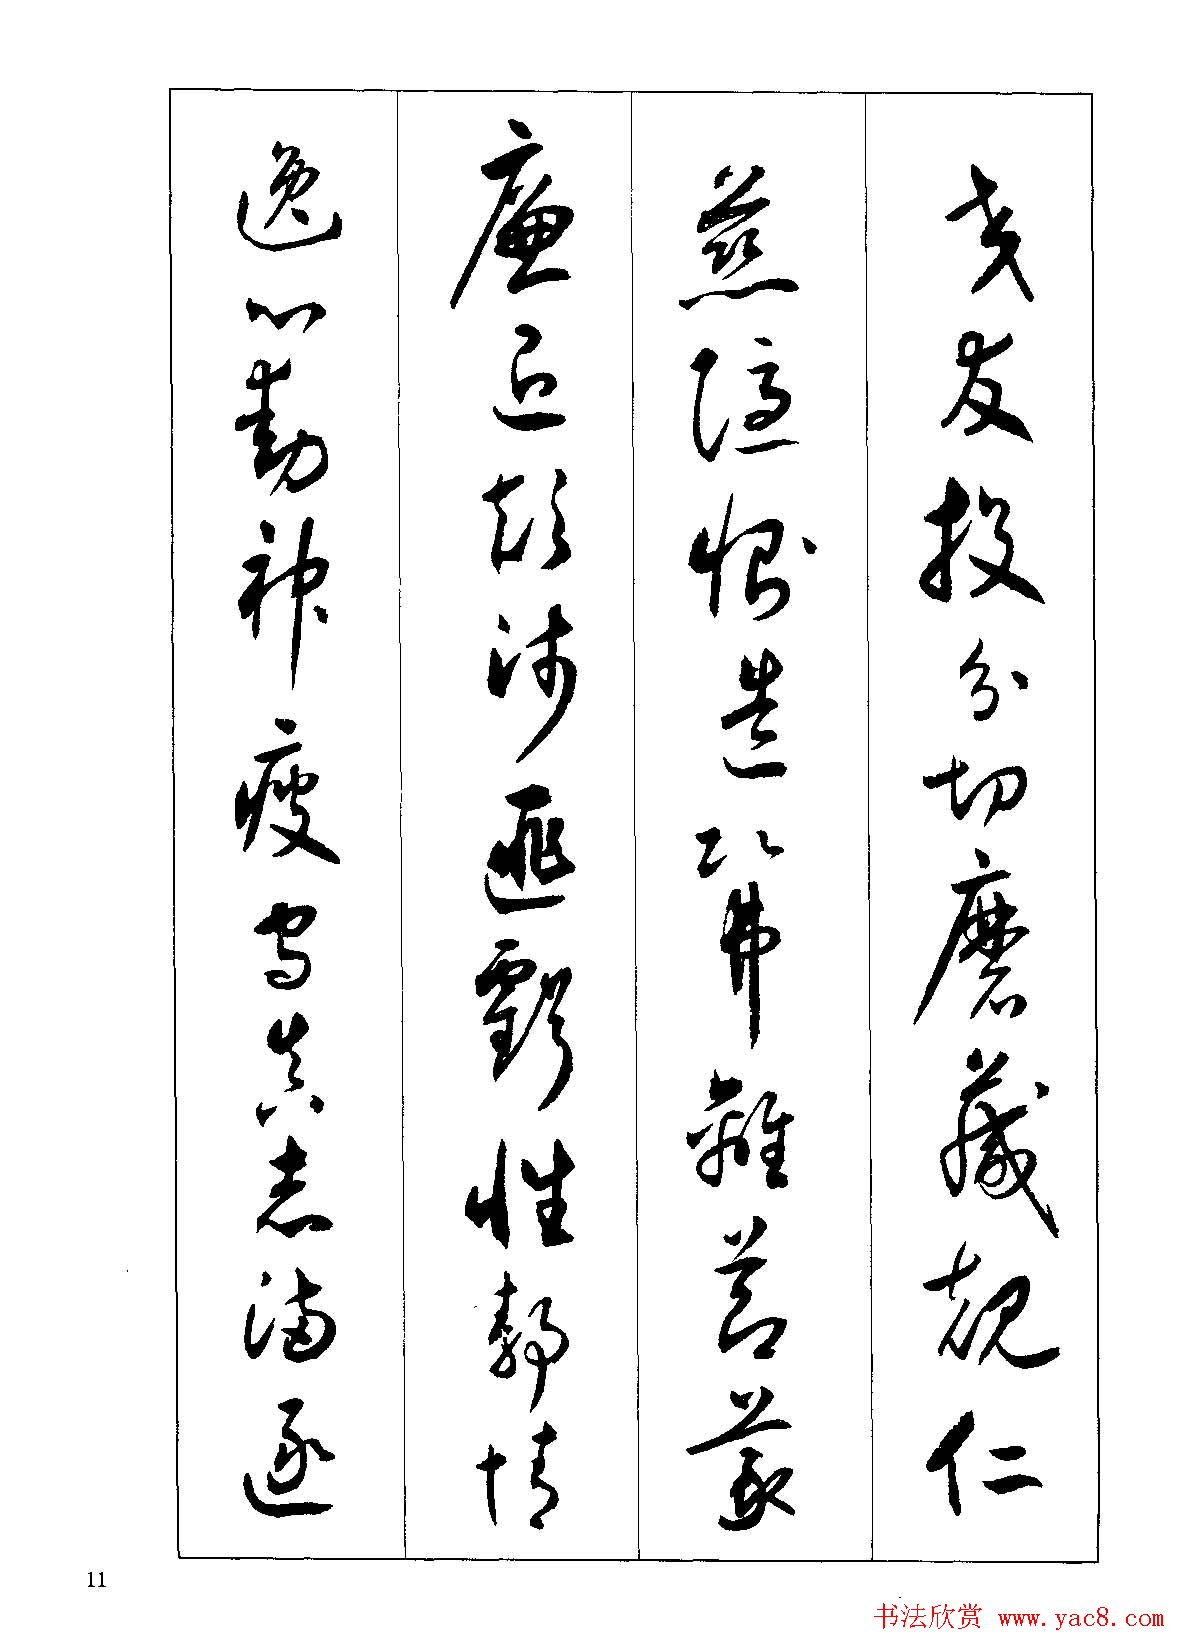 交友投分切磨箴規仁
慈隱惻造次弗離節義
廉退顛沛匪虧性靜情
逸心動神疲守真志滿逐
11
书法欣赏 www.yac8.com